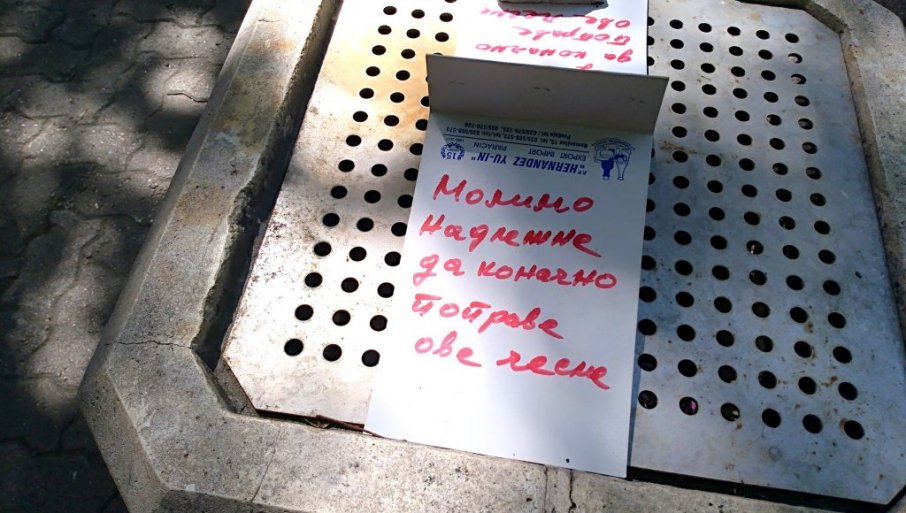 да коначно
Поправе
ове чесме
"HERNANDEZ YU-IN"
EXPORT IMPORT PARAĆIN
Молимо
Надлежне
да коначно
поправе
ове чесме